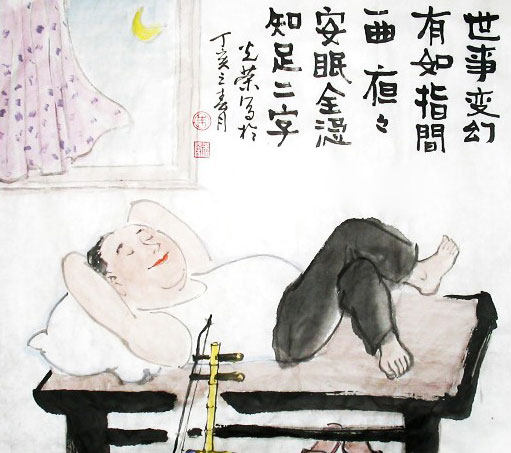 世事变幻
有如指間
一曲夜々
安眠全憑
知足二字
光荣写於
丁亥之春月